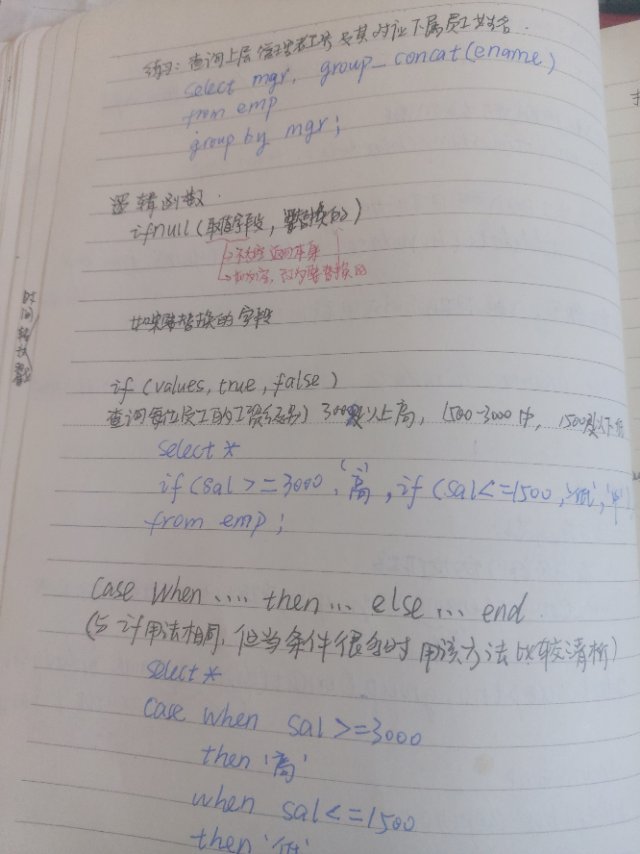 练习：查询上层管理者工号及其对应下属员工姓名.
select mgr, group_concat(ename)
from emp
group by mgr;
逻辑函数.
ifnull(取值字段, 要替换的)
不为空,返回本身
如为空,
替换的字段
if (values, true, false)
查询每位员工的工资级别) 3000及以上高, 1500-3000中, 1500及以下低
select *
if (sal >= 3000, '高', if (sal <= 1500, '低', '中'
from emp;
case when .... then ... else ... end.
(与if用法相同, 但当条件很多时 用该方法比较清晰)
select *
case when sal >= 3000
then '高'
when sal <= 1500
then '低'